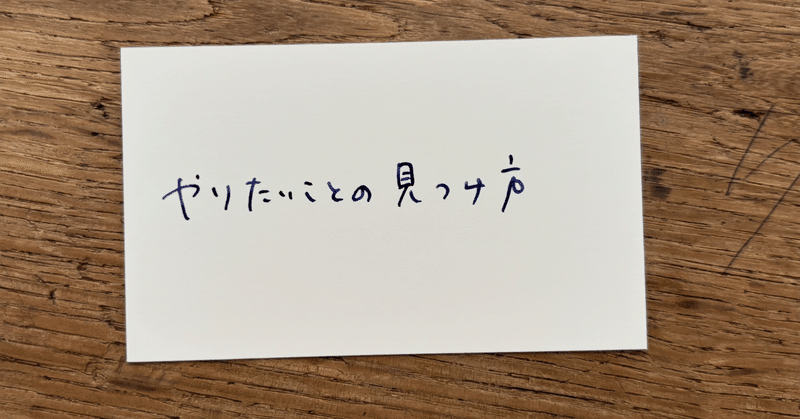 やりたいことの見つけ方